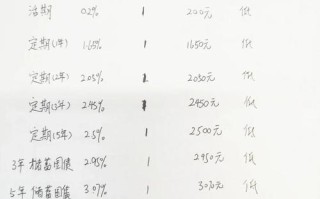 活期 0.2% 1 200元 低
定期(1年) 1.65% 1 1650元 低
定期(2年) 2.05% 1 2050元 低
定期(3年) 2.45% 1 2450元 低
定期(5年) 2.5% 1 2500元 低
3年 储蓄国债 2.95% 1 2950元 低
5年 储蓄国债 3.07% 1 3070元 低